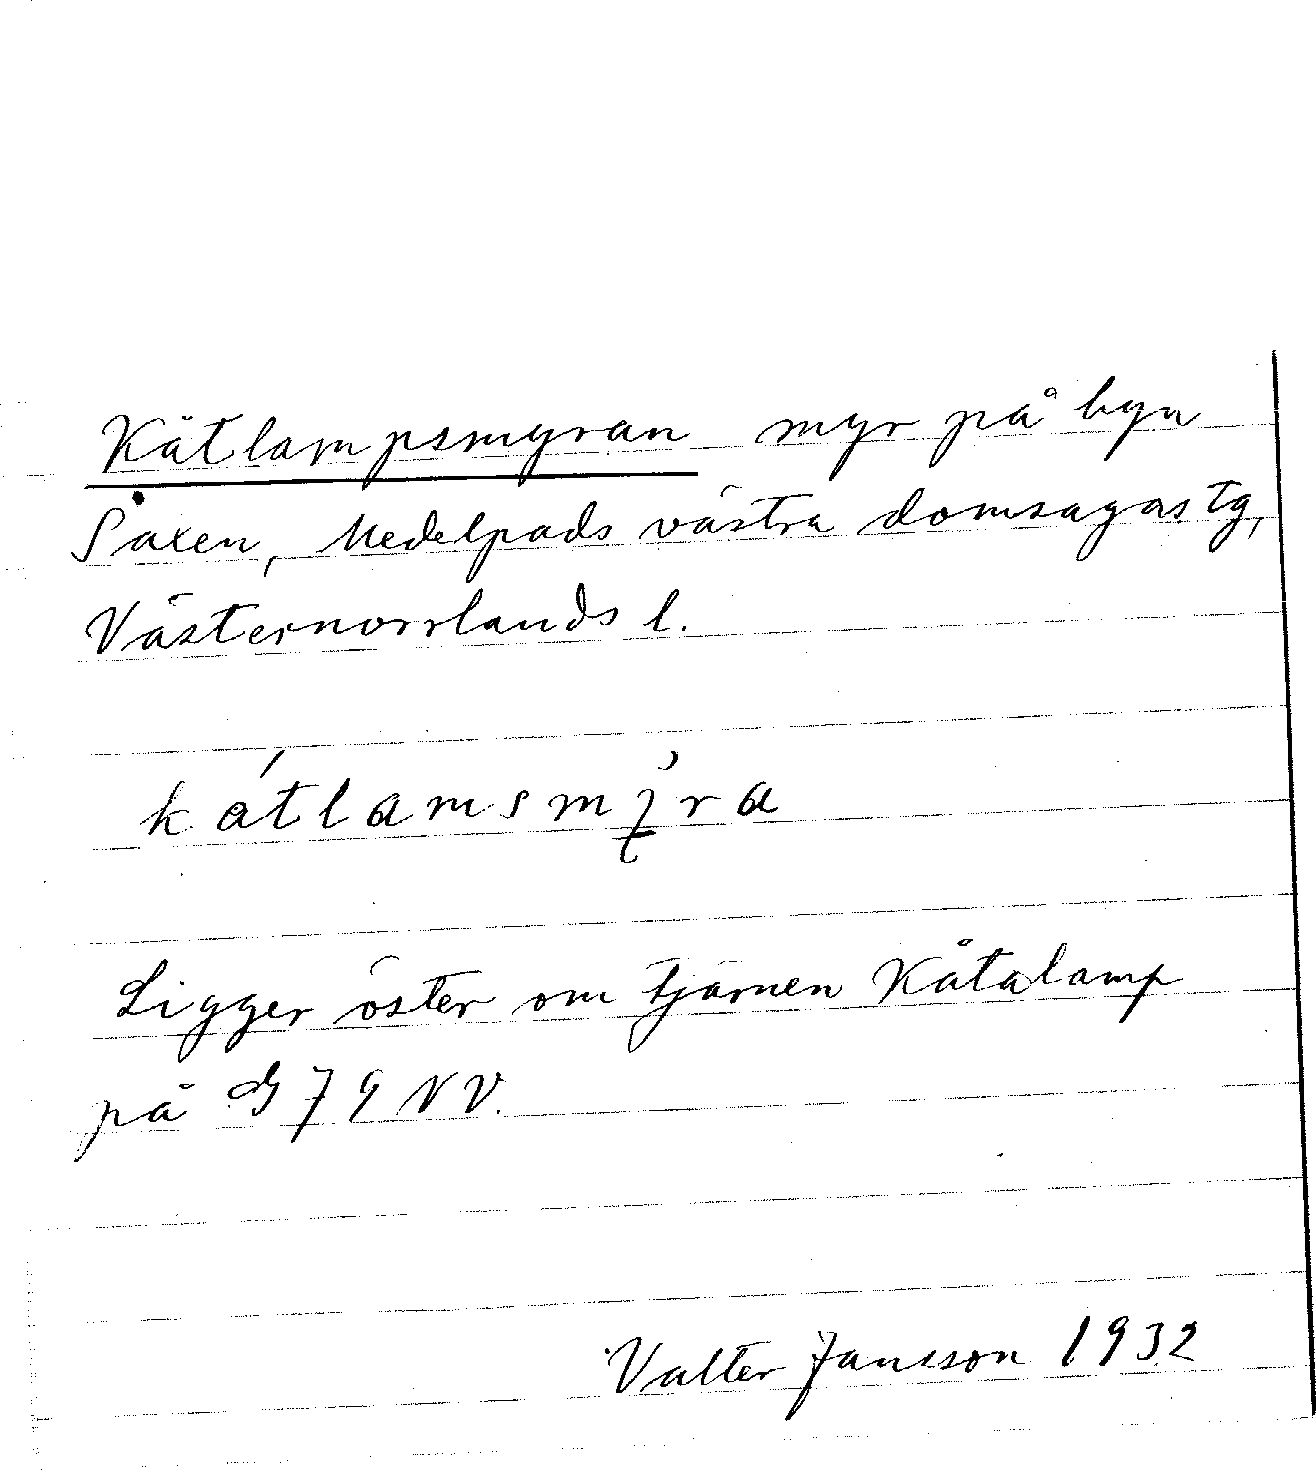 Kåtlampsmyran myr på byn
Saxen, Medelpads västra domsagas tg,
Västernorrlands l.
Ligger öster om tjärnen Kåtalamp
på G 79 NV.
Valter Jansson 1932